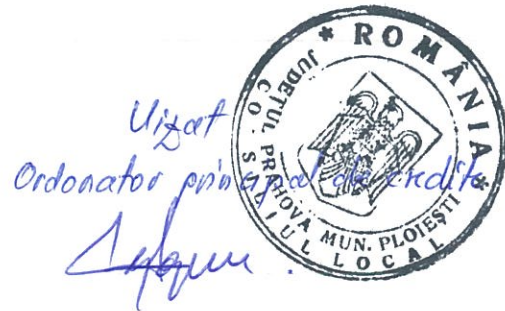 Vizat
Ordonator principal de credite
* ROMÂNIA *
JUDEŢUL PRAHOVA MUN. PLOIEŞTI
CO SILIUL LOCAL